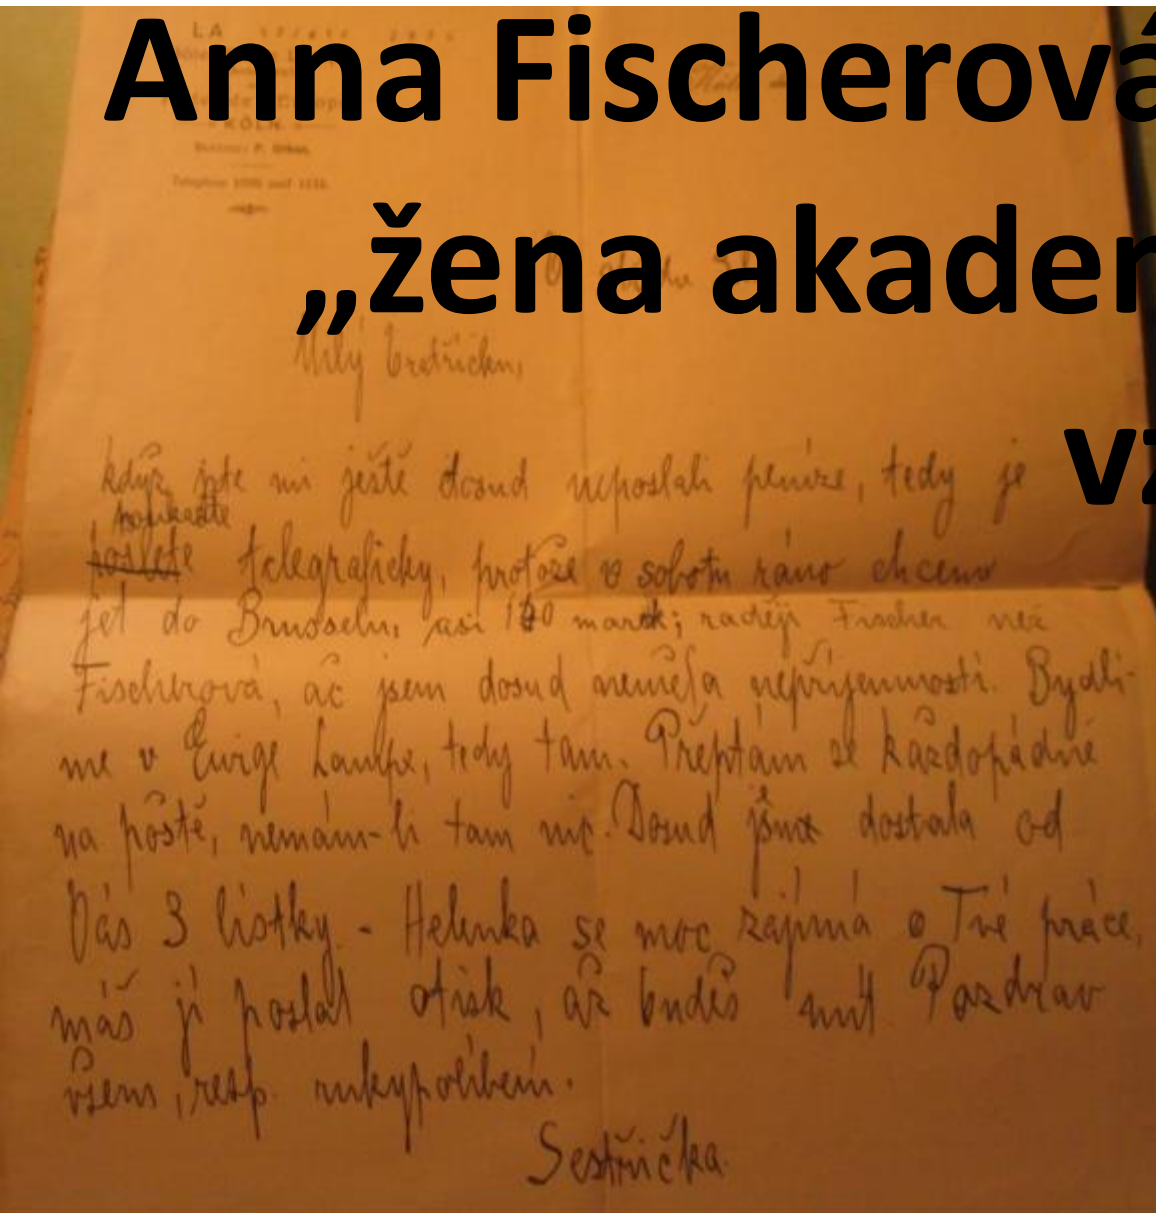 Anna Fischerová
„žena akadem
vz
LA
KÖLN.
Milý bratříčku,
když jste mi ještě dosud neposlali peníze, tedy je
poukažte
pošlete telegraficky, protože v sobotu ráno chceme
jet do Brusselu, asi 120 marek; raději Fischer než
Fischerová, ač jsem dosud neměla nepříjemnosti. Bydlí-
me v Ewige Lampe, tedy tam. Přeptám se každopádně
na poště, nemám-li tam nic. Dosud jsme dostala od
Vás 3 lístky. - Helenka se moc zajímá o Tvé práce,
máš jí poslat otisk, až budeš mít. Pozdrav
všem, resp. rukypolíbení.
Sestřička.